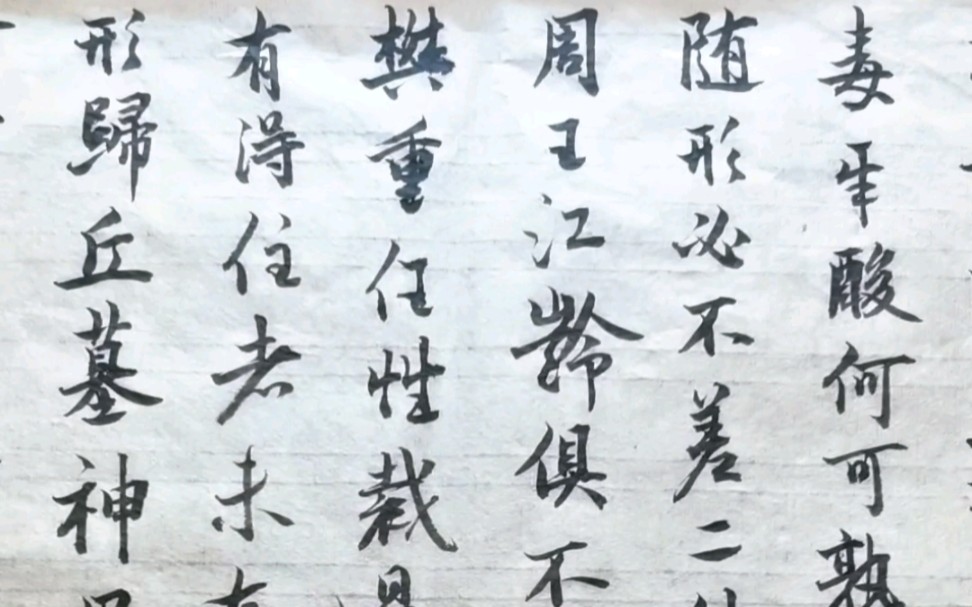 毒年酸何可熟
随形必不差二
周王江龄俱不
樊重任性裁
有得住者未有
形歸丘墓神